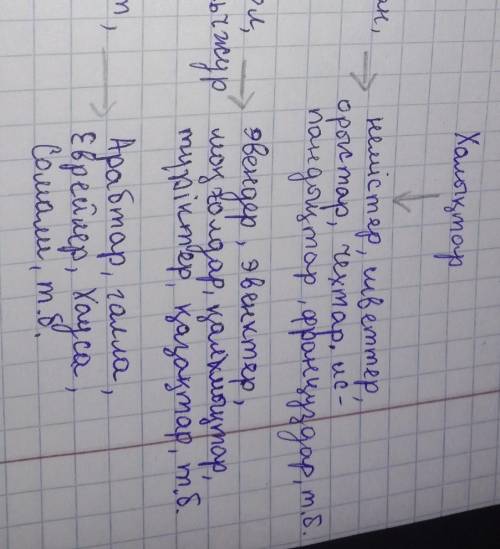 Халықтар
немістер, шветтер,
орыстар, чехтар, ис-
пандықтар, француздар, т.б.
эвендер, эвенктер,
моңғолдар, қалмықтар,
түріктер, қазақтар, т.б.
Арабтар, галла,
Еврейлер, Хауса,
Сомали, т.б.